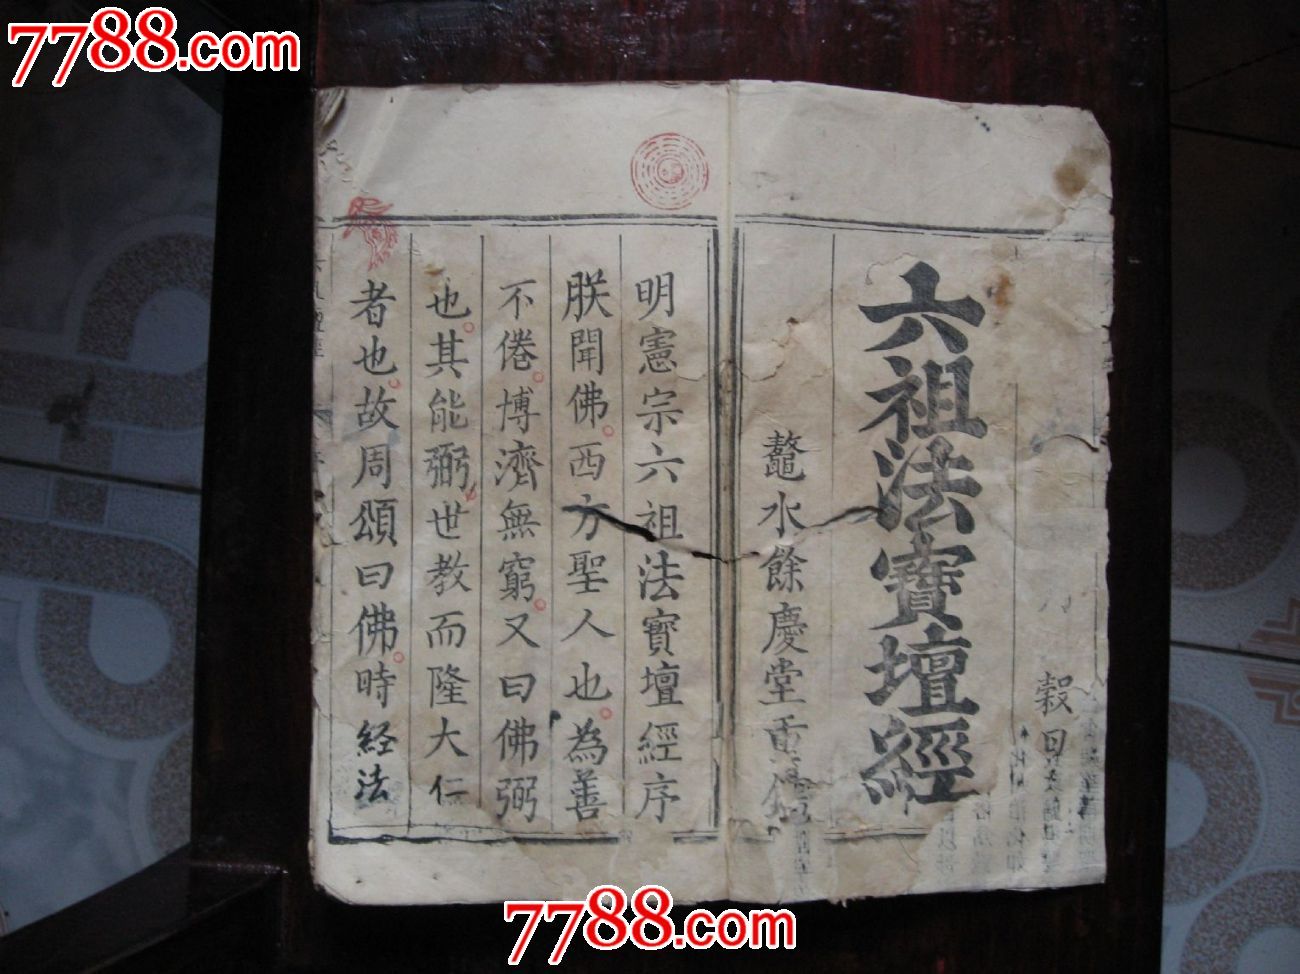 7788.com
7788.com
穀旦
六祖法寶壇經
鼇水餘慶堂重
明憲宗六祖法寶壇經序
朕聞佛西方聖人也為善
不倦博濟無窮又曰佛弼
也其能弼世教而隆大仁
者也故周頌曰佛時经法
7788.com